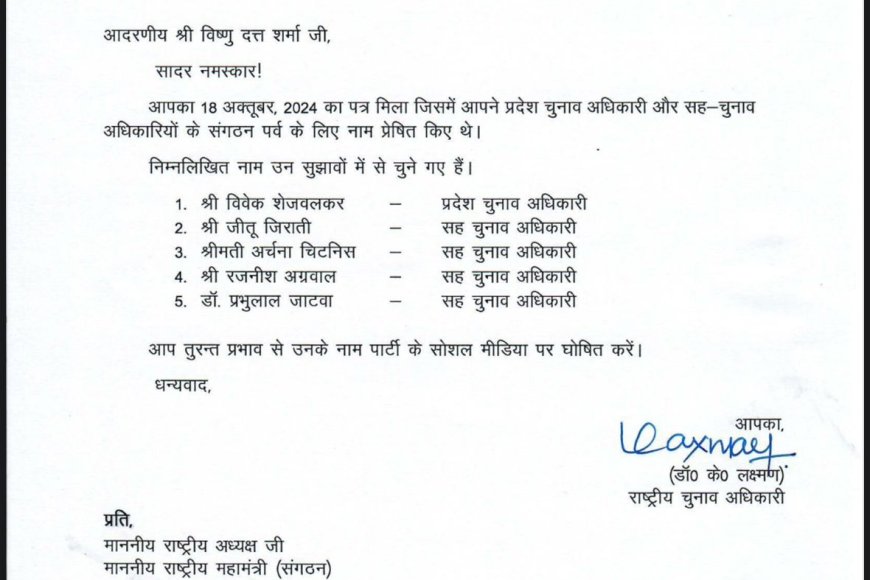 आदरणीय श्री विष्णु दत्त शर्मा जी,
सादर नमस्कार!
आपका 18 अक्तूबर, 2024 का पत्र मिला जिसमें आपने प्रदेश चुनाव अधिकारी और सह–चुनाव
अधिकारियों के संगठन पर्व के लिए नाम प्रेषित किए थे।
निम्नलिखित नाम उन सुझावों में से चुने गए हैं।
1. श्री विवेक शेजवलकर – प्रदेश चुनाव अधिकारी
2. श्री जीतू जिराती – सह चुनाव अधिकारी
3. श्रीमती अर्चना चिटनिस – सह चुनाव अधिकारी
4. श्री रजनीश अग्रवाल – सह चुनाव अधिकारी
5. डॉ. प्रभुलाल जाटवा – सह चुनाव अधिकारी
आप तुरन्त प्रभाव से उनके नाम पार्टी के सोशल मीडिया पर घोषित करें।
धन्यवाद,
आपका,
(डॉ0 के0 लक्ष्मण)
राष्ट्रीय चुनाव अधिकारी
प्रति,
माननीय राष्ट्रीय अध्यक्ष जी
माननीय राष्ट्रीय महामंत्री (संगठन)